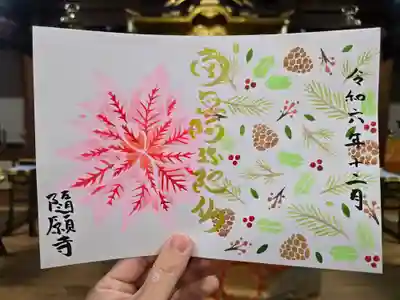 令和六年十二月
南無阿弥陀佛
隨願寺